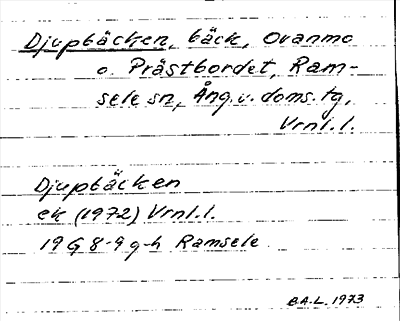 Djupbäcken, bäck, Ovanmo
o. Prästbordet, Ram-
sele sn, Ång. v. doms. tg,
Vrnl. l.
Djupbäcken
ek (1972) Vrnl. l.
19G 8-9 g-h Ramsele
B.A-L. 1973